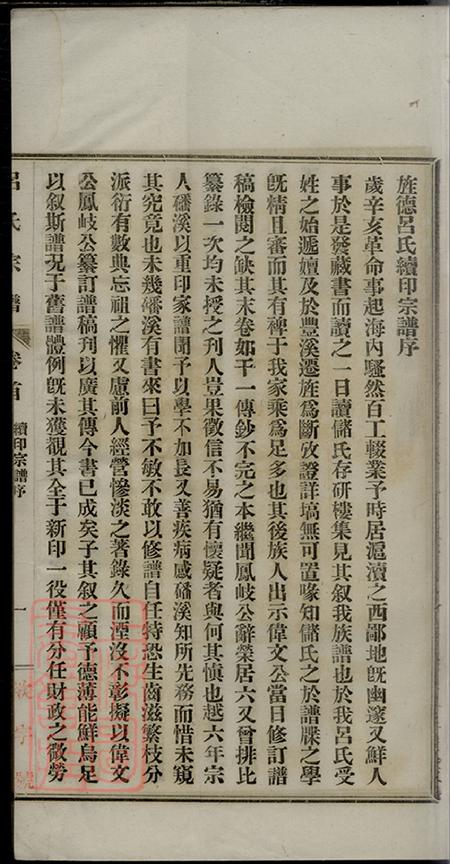 旌德呂氏續印宗譜序
歲辛亥革命事起海內騷然百工輟業予時居滬瀆之西鄙地旣幽邃又鮮人
事於是發藏書而讀之一日讀儲氏存研樓集見其叙我族譜也於我呂氏受
姓之始遞嬗及於豐溪遷旌爲斷攷證詳塙無可置喙知儲氏之於譜牒之學
旣精且審而其有裨于我家乘爲足多也其後族人出示偉文公當日修訂譜
稿檢閱之缺其末卷如干一傳鈔不完之本繼聞鳳岐公辭榮居六又曾排比
纂錄一次均未授之刊人豈果徵信不易猶有懷疑者與何其愼也越六年宗
人磻溪以重印家譜聞予以學不加長又善疾病感磻溪知所先務而惜未窺
其究竟也未幾磻溪有書來曰予不敏不敢以修譜自任特恐生齒滋繁枝分
派衍有數典忘祖之懼又慮前人經營慘淡之著錄久而湮沒不彰擬以偉文
公鳳岐公纂訂譜稿刋以廣其傳今書已成矣子其叙之顧予德薄能鮮烏足
以叙斯譜況于舊譜體例旣未獲覩其全于新印一役僅有分任財政之微勞
呂氏宗譜
卷首
續印宗譜序
一